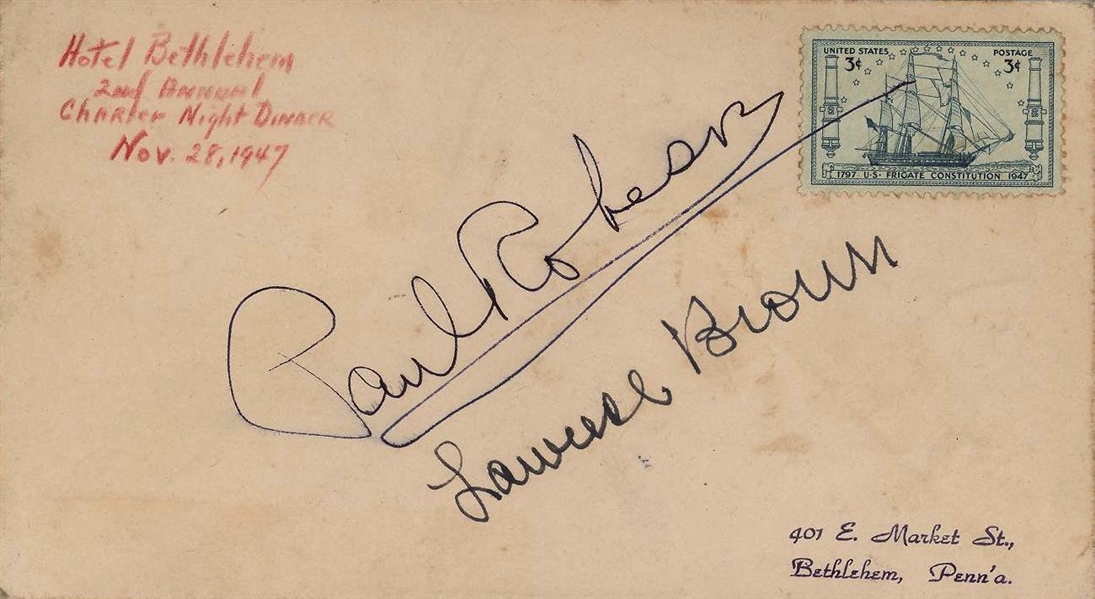 Hotel Bethlehem
2nd Annual
Charter Night Dinner
Nov. 28, 1947
UNITED STATES POSTAGE
3¢ 3¢
1797 U·S· FRIGATE CONSTITUTION 1947
Paul Robeson
Lawrence Brown
401 E. Market St.,
Bethlehem, Penn'a.